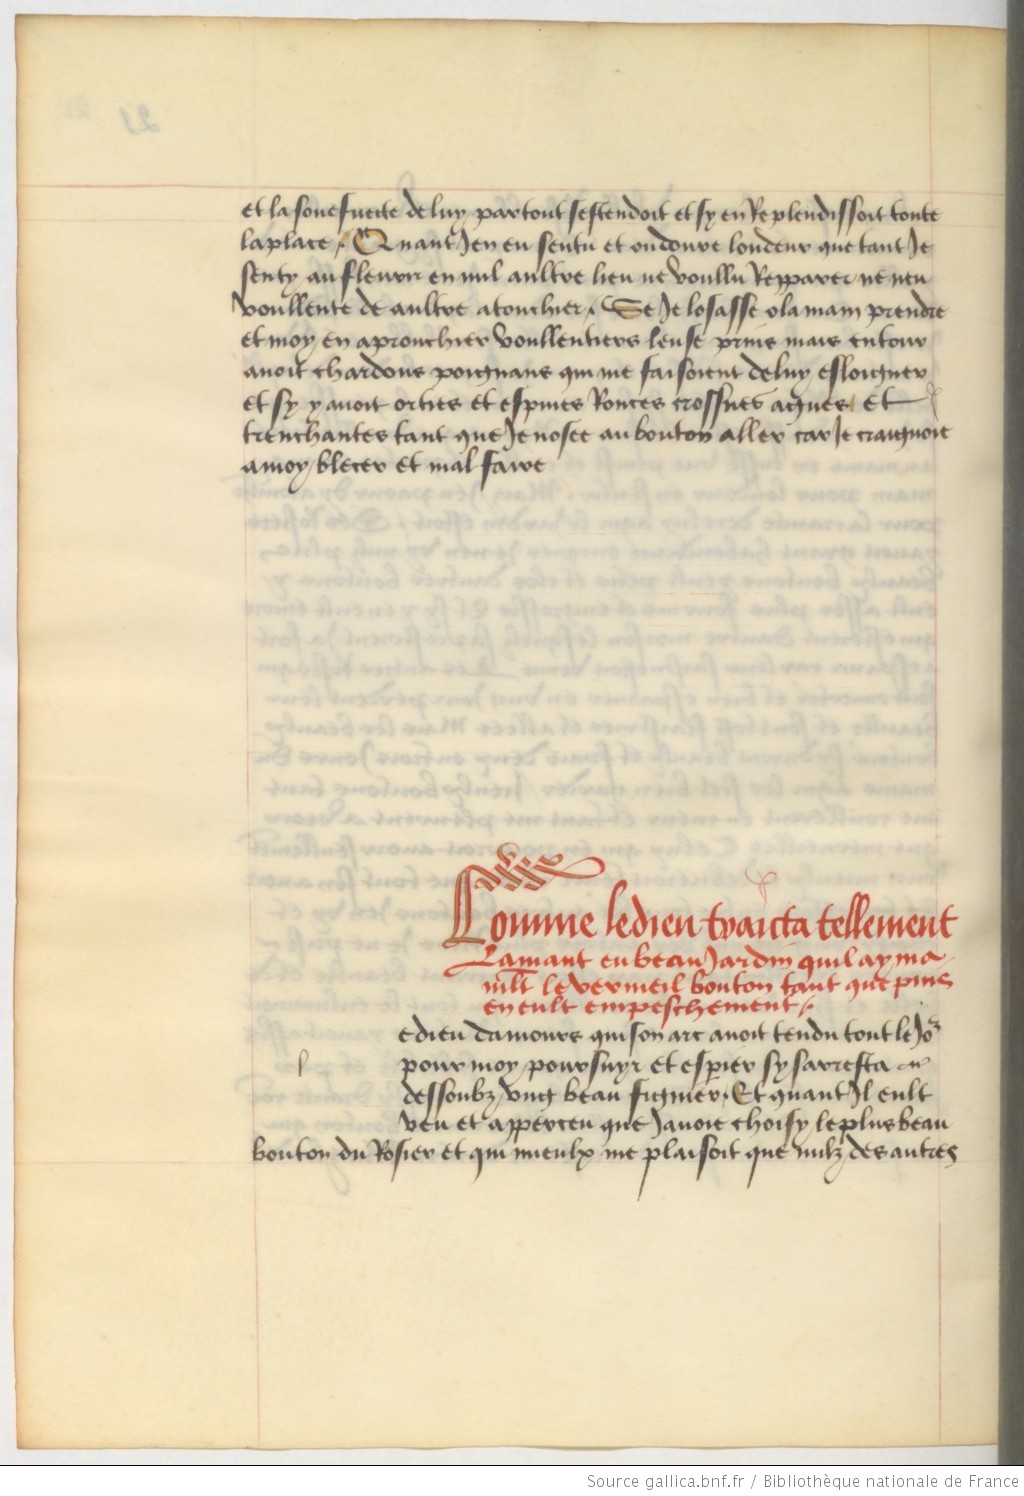 et la souefuete de luy par tout sestendoit et sy en Replendissoit toute
la place. Quant Jen eu sentu et oudoure loudeur que tant Je
senty au fleurir en nul aultre lieu ne voullu Repparer ne neu
voullente de aultre atouchier. Se Je losasse o la main prendre
et moy en aprouchier voullentiers leuse prins mais entour
auoit chardons poignans qui me faisoient de luy esloigner
et sy y auoit orties et espines Ronces crossues agues et
trenchantes tant que Je nosee au bouton aller car Je craignoie
a moy blecer et mal faire
Comme le dieu traicta tellement
Lamant en beau Jardin quil ayma
le vermeil bouton tant que puis
en eult empeschement.
l
e dieu damours qui son arc auoit tendu tout le Jor
pour moy poursuyr et espier sy sarresta
dessoubz ung beau figuier. Et quant Il eult
veu et apperceu que Jauoie choisy le plus beau
bouton du Rosier et qui mieulx me plaisoit que nulz des autres
Source gallica.bnf.fr / Bibliothèque nationale de France